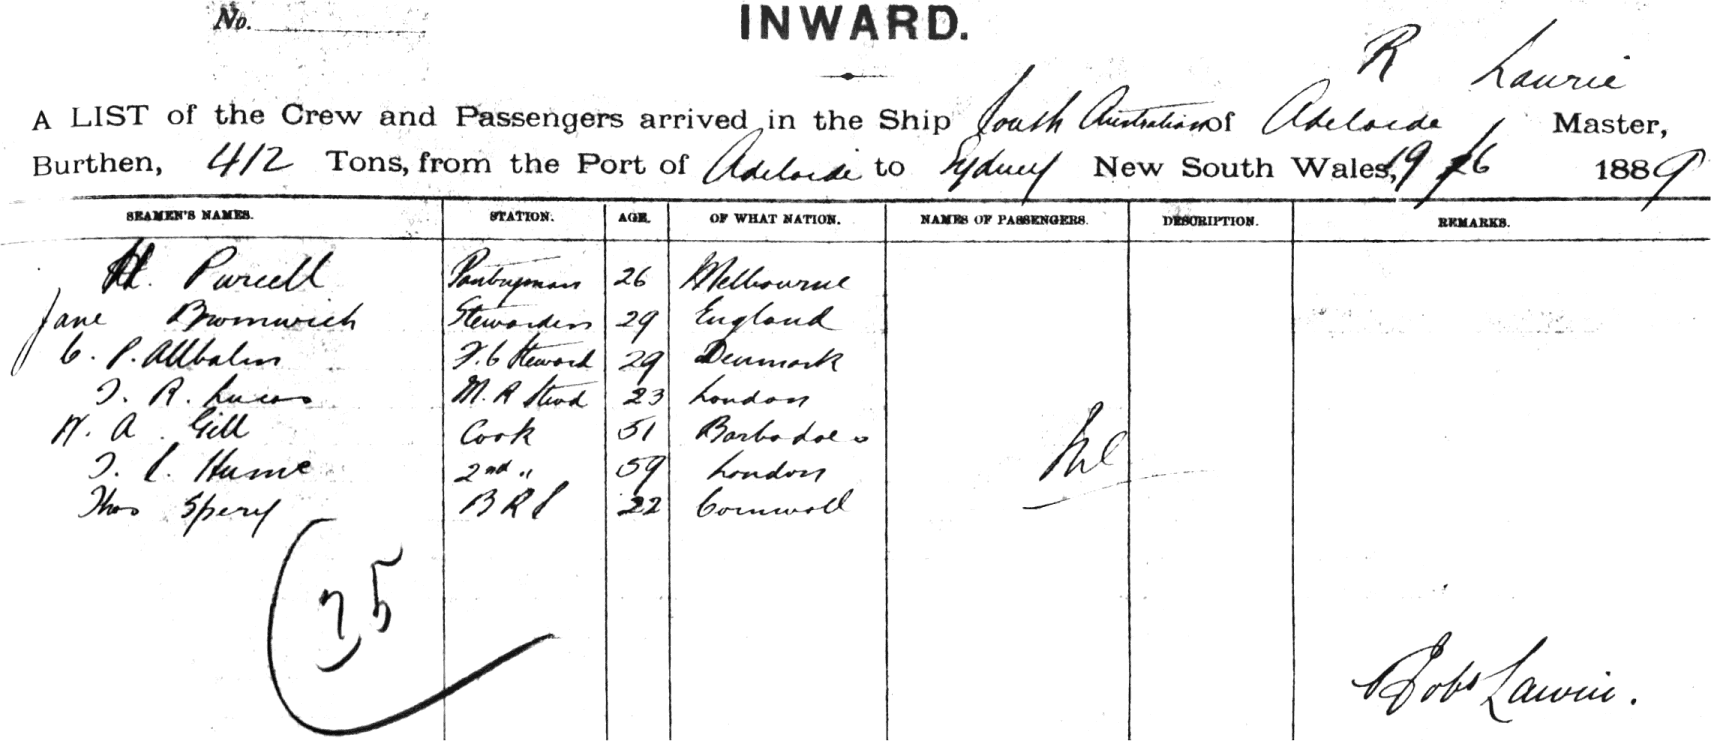 No.
INWARD.
R Laurie
A LIST of the Crew and Passengers arrived in the Ship South Australian of Adelaide Master,
Burthen, 412 Tons, from the Port of Adelaide to Sydney New South Wales, 19/6 1889
SEAMEN'S NAMES. STATION. AGE. OF WHAT NATION. NAMES OF PASSENGERS. DESCRIPTION. REMARKS.
H. Purcell Pantryman 26 Melbourne
Jane Bromwich Stewardess 29 England
C. P. F.C Steward 29 Denmark
T. R. Lucas M. R Stwd 23 London
W. A. Gill Cook 51 Barbadoes
T. C. Hume 2nd " 59 London
Nil
Thos Spery B R S 22 Cornwall
35
Robt Laurie.